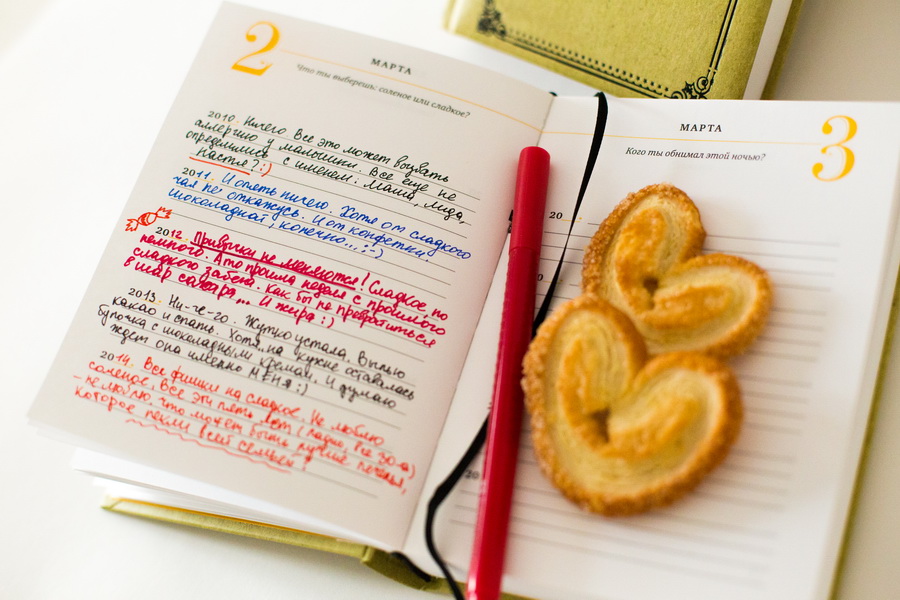 2
МАРТА
Что ты выберешь: соленое или сладкое?
2010. Ничего. Все это может вызвать
аллергию у малышки. Все еще не
определились с именем: Маша, Лида,
Настя?:)
2011. И опять ничего. Хотя от сладкого
чая не откажусь. И от конфетки!
Шоколадной, конечно...;-)
2012. Привычки не меняются! Сладкое, но
немного. А то прошла неделя с прошлого
сладкого забега. Как бы не превратиться
в шар сахара... И жира:)
2013. Ни-че-го. Жутко устала. Выпью
какао и спать. Хотя.. на кухне оставалась
булочка с шоколадным кремом. И думаю
ждет она именно МЕНЯ:)
2014. Все фишки на сладкое. Не люблю
соленое. Все эти пять лет (ладно, все 30-а)
не люблю. Что может быть лучше печенья,
которое пекли всей семьей?
МАРТА
3
Кого ты обнимал этой ночью?
20
0
20